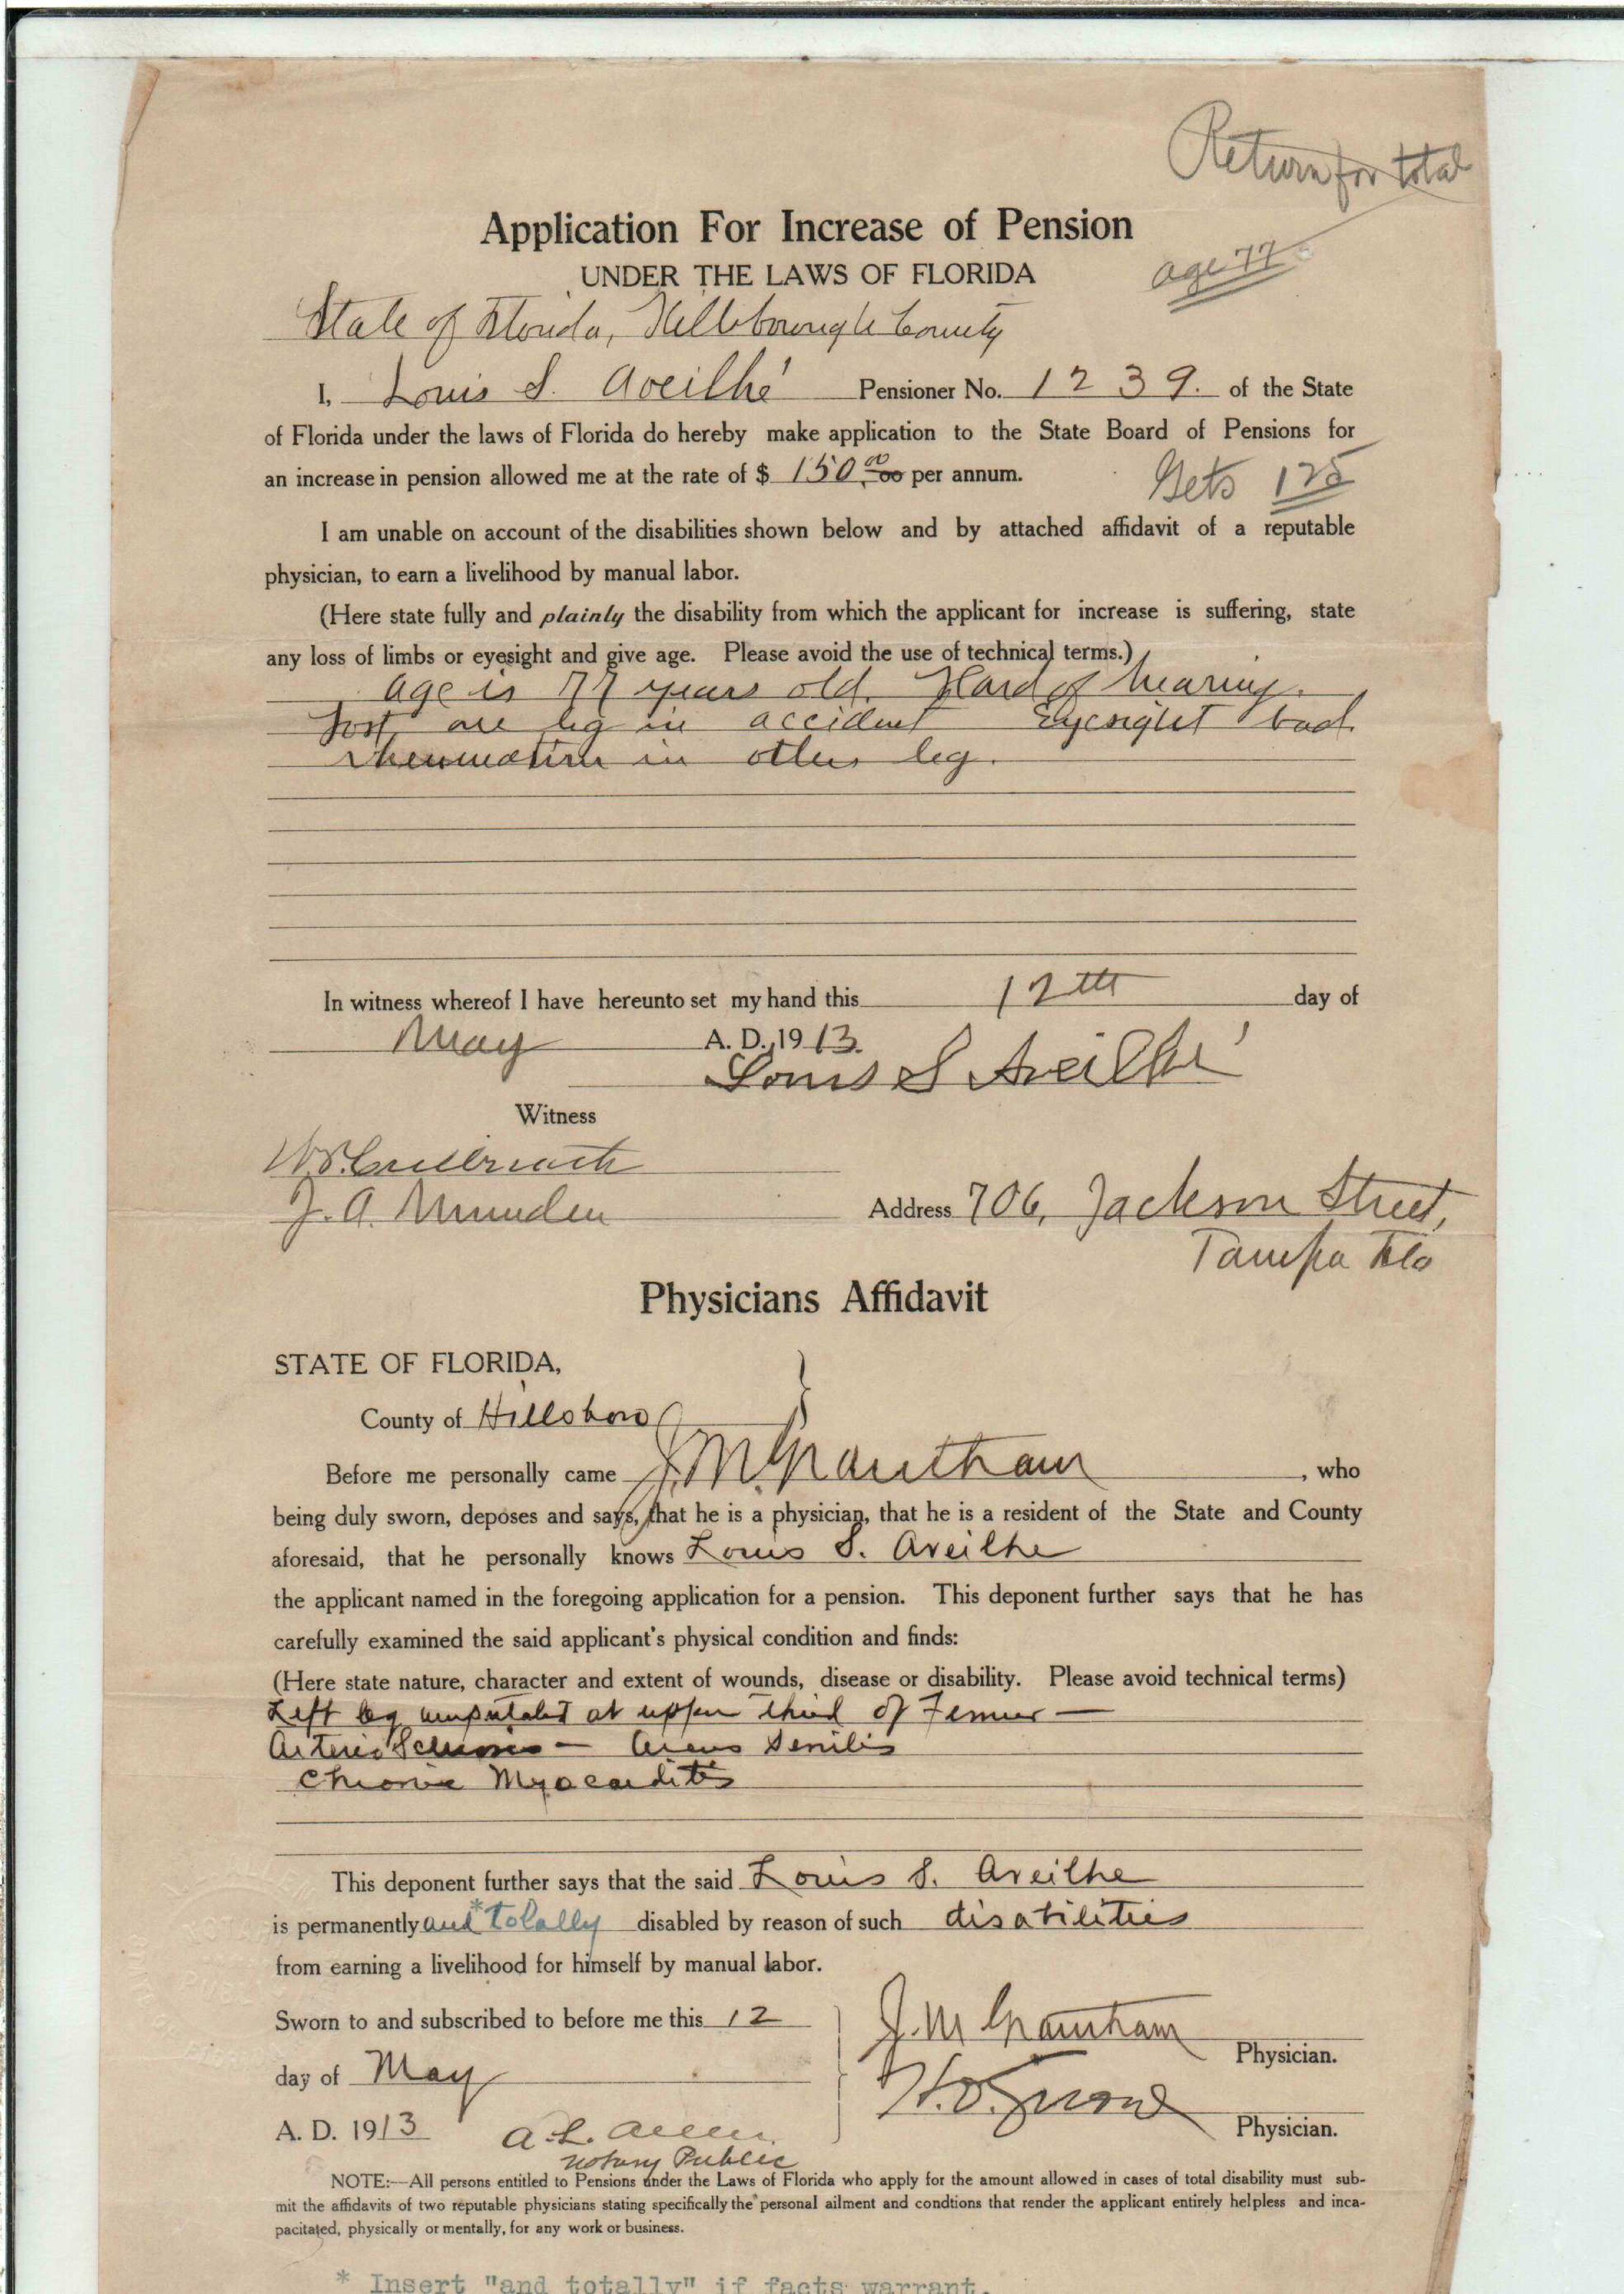 Return for total
Application For Increase of Pension
UNDER THE LAWS OF FLORIDA
age 77
State of Florida, Hillsborough County
I, Louis S. Aveilhé Pensioner No. 1239. of the State
of Florida under the laws of Florida do hereby make application to the State Board of Pensions for
an increase in pension allowed me at the rate of $ 150.00 per annum.
Gets 125
I am unable on account of the disabilities shown below and by attached affidavit of a reputable
physician, to earn a livelihood by manual labor.
(Here state fully and plainly the disability from which the applicant for increase is suffering, state
any loss of limbs or eyesight and give age. Please avoid the use of technical terms.)
age is 77 years old. Hard of hearing.
Lost one leg in accident Eyesight bad
rheumatism in other leg.
In witness whereof I have hereunto set my hand this 12th day of
May A. D. 1913.
Louis S Aveilhé
Witness
J. A. Munden
Address 706, Jackson Street,
Tampa Fla
Physicians Affidavit
STATE OF FLORIDA,
County of Hillsboro
Before me personally came J. M. Grantham, who
being duly sworn, deposes and says, that he is a physician, that he is a resident of the State and County
aforesaid, that he personally knows Louis S. Aveilhe
the applicant named in the foregoing application for a pension. This deponent further says that he has
carefully examined the said applicant's physical condition and finds:
(Here state nature, character and extent of wounds, disease or disability. Please avoid technical terms)
Left leg amputated at upper third of Femur —
Arterio Sclerosis — Arcus Senilis
Chronic Myocarditis
This deponent further says that the said Louis S. Aveilhe
is permanently and *totally disabled by reason of such disabilities
from earning a livelihood for himself by manual labor.
Sworn to and subscribed to before me this 12
day of May
A. D. 1913
J. M Grantham
Physician.
H. O. Snow
Physician.
A. L. Allen
Notary Public
NOTE:—All persons entitled to Pensions under the Laws of Florida who apply for the amount allowed in cases of total disability must sub-
mit the affidavits of two reputable physicians stating specifically the personal ailment and condtions that render the applicant entirely helpless and inca-
pacitated, physically or mentally, for any work or business.
* Insert "and totally" if facts warrant.